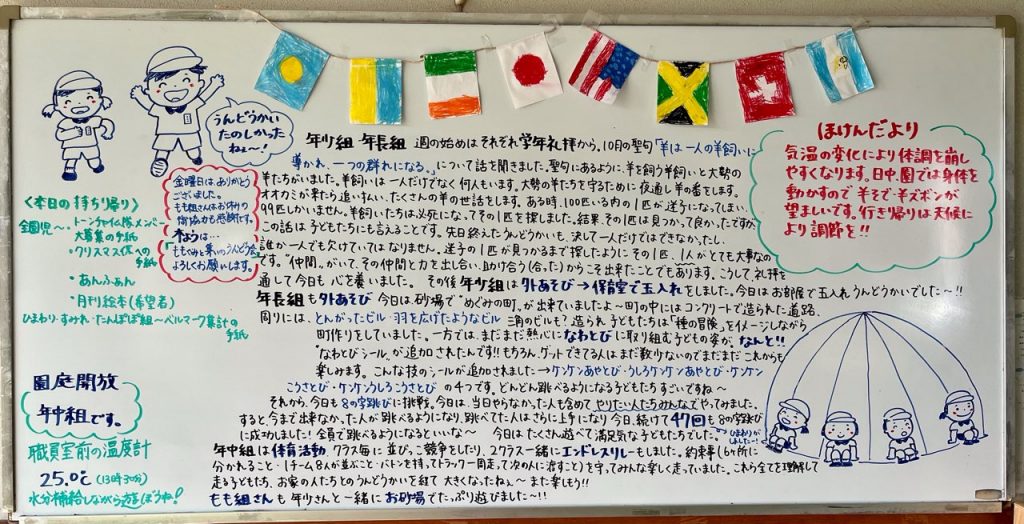 うんどうかい
たのしかった
ねぇ〜!
金曜日はありがとう
ございました。
もも組さんはお休みの
御協力も感謝です。
木ようは…
「ももぐみと楽しいうんどう会」
よろしくお願いします。
<本日の持ち帰り>
全園児〜・トーンチャイム隊メンバー
大募集の手紙
・クリスマス会への
手紙
・あんふぁん
・月刊絵本(希望者)
ひまわり・すみれ・たんぽぽ組〜ベルマーク集計の
手紙
園庭開放
年中組です。
職員室前の温度計
25.0℃(13時30分)
水分補給しながら遊ぼうね!
年少組 年長組 週の始めはそれぞれ学年礼拝から。10月の聖句「羊は一人の羊飼いに
導かれ、一つの群れになる。」について話を聞きました。聖句にあるように、羊を飼う羊飼いと大勢の
羊たちがいました。羊飼いは一人だけでなく何人もいます。大勢の羊たちを守るために夜通し羊の番をします。
オオカミが来たら追い払い、たくさんの羊の世話をします。ある時、100匹いる内の1匹が迷子になってしまい、
99匹しかいません。羊飼いたちは必死になってその1匹を探しました。結果、その1匹は見つかって良かったですが、
この話は子どもたちにも言えることです。先日終えたうんどうかいも、決して一人だけではできなかったし、
誰か一人でも欠けていてはなりません。迷子の1匹が見つかるまで探したようにその1匹、1人がとても大事なの
です。“仲間”がいて、その仲間と力を出し合い、助け合う(合った)からこそ出来たことでもあります。こうして、礼拝を
通して今日も心を養いました。 その後 年少組は外あそび→保育室で玉入れをしました。今日はお部屋で玉入れうんどうかいでした〜!!
年長組も外あそび 今日は砂場で“めぐみの町”が出来ていましたよ〜町の中にはコンクリートで造られた道路、
周りには、とんがったビル・羽を広げたようなビル 三角のビルも?造られ子どもたちは「種の冒険」をイメージしながら
町作りをしていました。一方では、まだまだ熱心になわとびに取り組む子どもの姿が。なんと!!
“なわとびシール”が追加されたんです!!もちろん、ゲットできてる人はまだ数少ないのでまだまだこれからも
楽しみます。こんな技のシールが追加されました→ケンケンあやとび・うしろケンケンあやとび・ケンケン
こうさとび・ケンケンうしろこうさとび の4つです。どんどん跳べるようになる子どもたちすごいですね〜
それから、今日も8の字跳びに挑戦。今日は、当日やらなかった人も含めてやりたい人たちみんなでやってみました。
すると、今まで出来なかった人が跳べるようになり、跳べてた人はさらに上手になり今日、続けて47回も8の字跳び
に成功しました!全員で跳べるようになるといいな〜 今日はたくさん遊べて満足気な子どもたちでした。
ひまわりが
しました〜!
年中組は体育活動 クラス毎に並びっこ競争をしたり、2クラス一緒にエンドレスリレーもしました。約束事(6ヶ所に
分かれること・1チーム8人が並ぶこと・バトンを持ってトラック一周走って次の人に渡すこと)を守ってみんな楽しく走っていました。これら全てを理解して
走る子どもたち、お家の人たちとのうんどうかいを経て大きくなったねぇ〜また楽しもう!!
もも組さんも年少さんと一緒にお砂場でたっぷり遊びました〜!!
ほけんだより
気温の変化により体調を崩し
やすくなります。日中、園では身体を
動かすので半そで・半ズボンが
望ましいです。行き帰りは天候に
より調節を!!